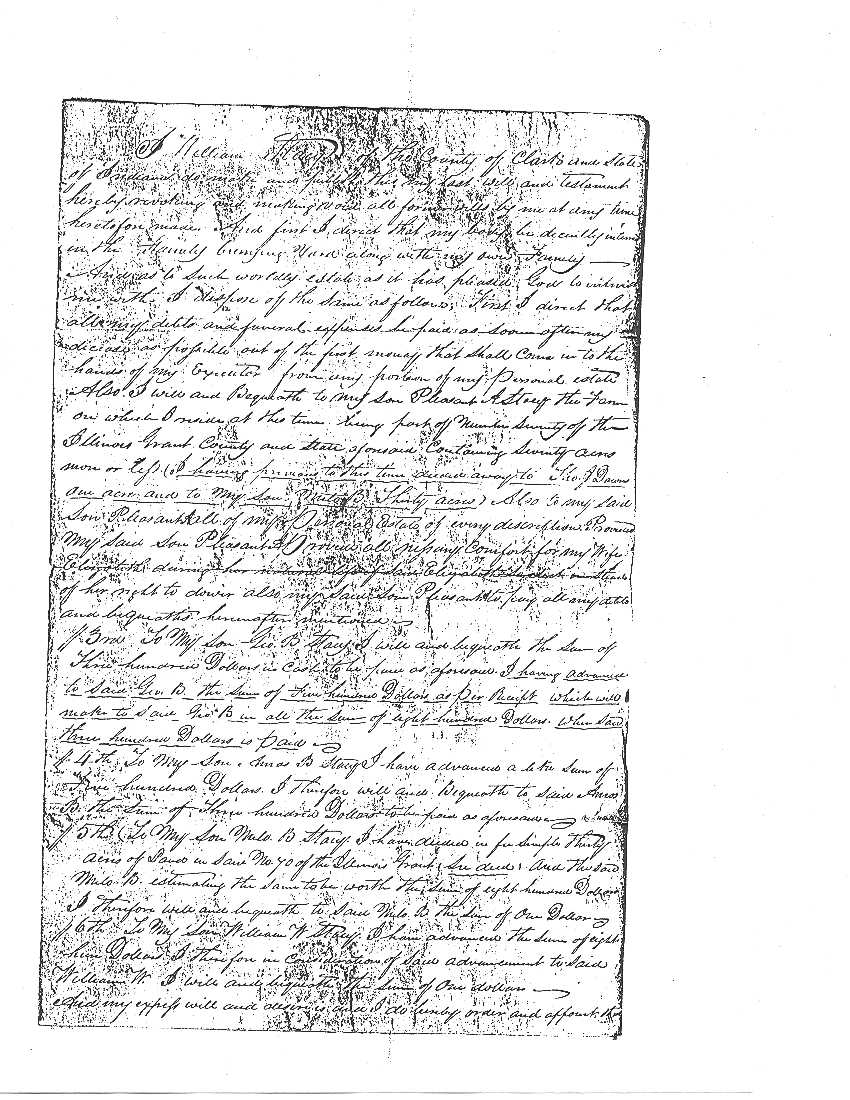 I William Stacy of the County of Clark and State
of Indiana do make and publish this my last will and testament
hereby revoking and making void all former wills by me at any time
heretofore made. And first I direct that my body be decently
in the Family burying Yard along with my own Family
And as to such worldly estate as it has pleased God to
me with I dispose of the same as follows, First I direct that
all my debts and funeral expenses be paid as soon after my
decease as possible out of the first money that shall come in to the
hands of my Executor from any portion of my personal estate
Also I will and Bequeath to my son Pleasant A Stacy the Farm
on which I reside at this time being part of Number Seventy of the
Illinois Grant County and State aforesaid Containing Seventy acres
more or less (I having previous to this time deeded away to Geo. J Downs
one acre and to My Son Milo B. Thirty acres) Also to my said
Son Pleasant A all of my Personal Estate of every description Provided
My said Son Pleasant A Provide all Comfort for my Wife
Elizabeth during her natural life
of her right to dower also my said Son Pleasant A to pay all my debts
and bequeaths hereafter mentioned
3rd To My Son Geo. B Stacy I will and bequeath the Sum of
Three hundred Dollars in Cash to be paid as aforesaid I having advanced
to said Geo. B. the Sum of Five hundred Dollars as Per Receipt which will
make to said Geo B in all the Sum of eight hundred Dollars. When said
three hundred Dollars is Paid
4th To My Son Amos B Stacy I have advanced a like Sum of
Five hundred Dollars I therefore will and Bequeath to said Amos
B. the Sum of Three hundred Dollars to be paid as aforesaid
5th To My Son Milo B Stacy I have deeded in fee simple thirty
acres of Land in said No 70 of the Illinois Grant (See deed) And the said
Milo B. estimating the same to be worth the Sum of eight hundred Dollars
I therefore will and bequeath to said Milo B the Sum of One Dollar
6th To My Son William W. Stacy I have advanced the Sum of eight
Dollars I therefore in Consideration of said advancement to said
William W. I will and bequeath the Sum of One dollar
And my express will and desire is and I do hereby order and appoint that